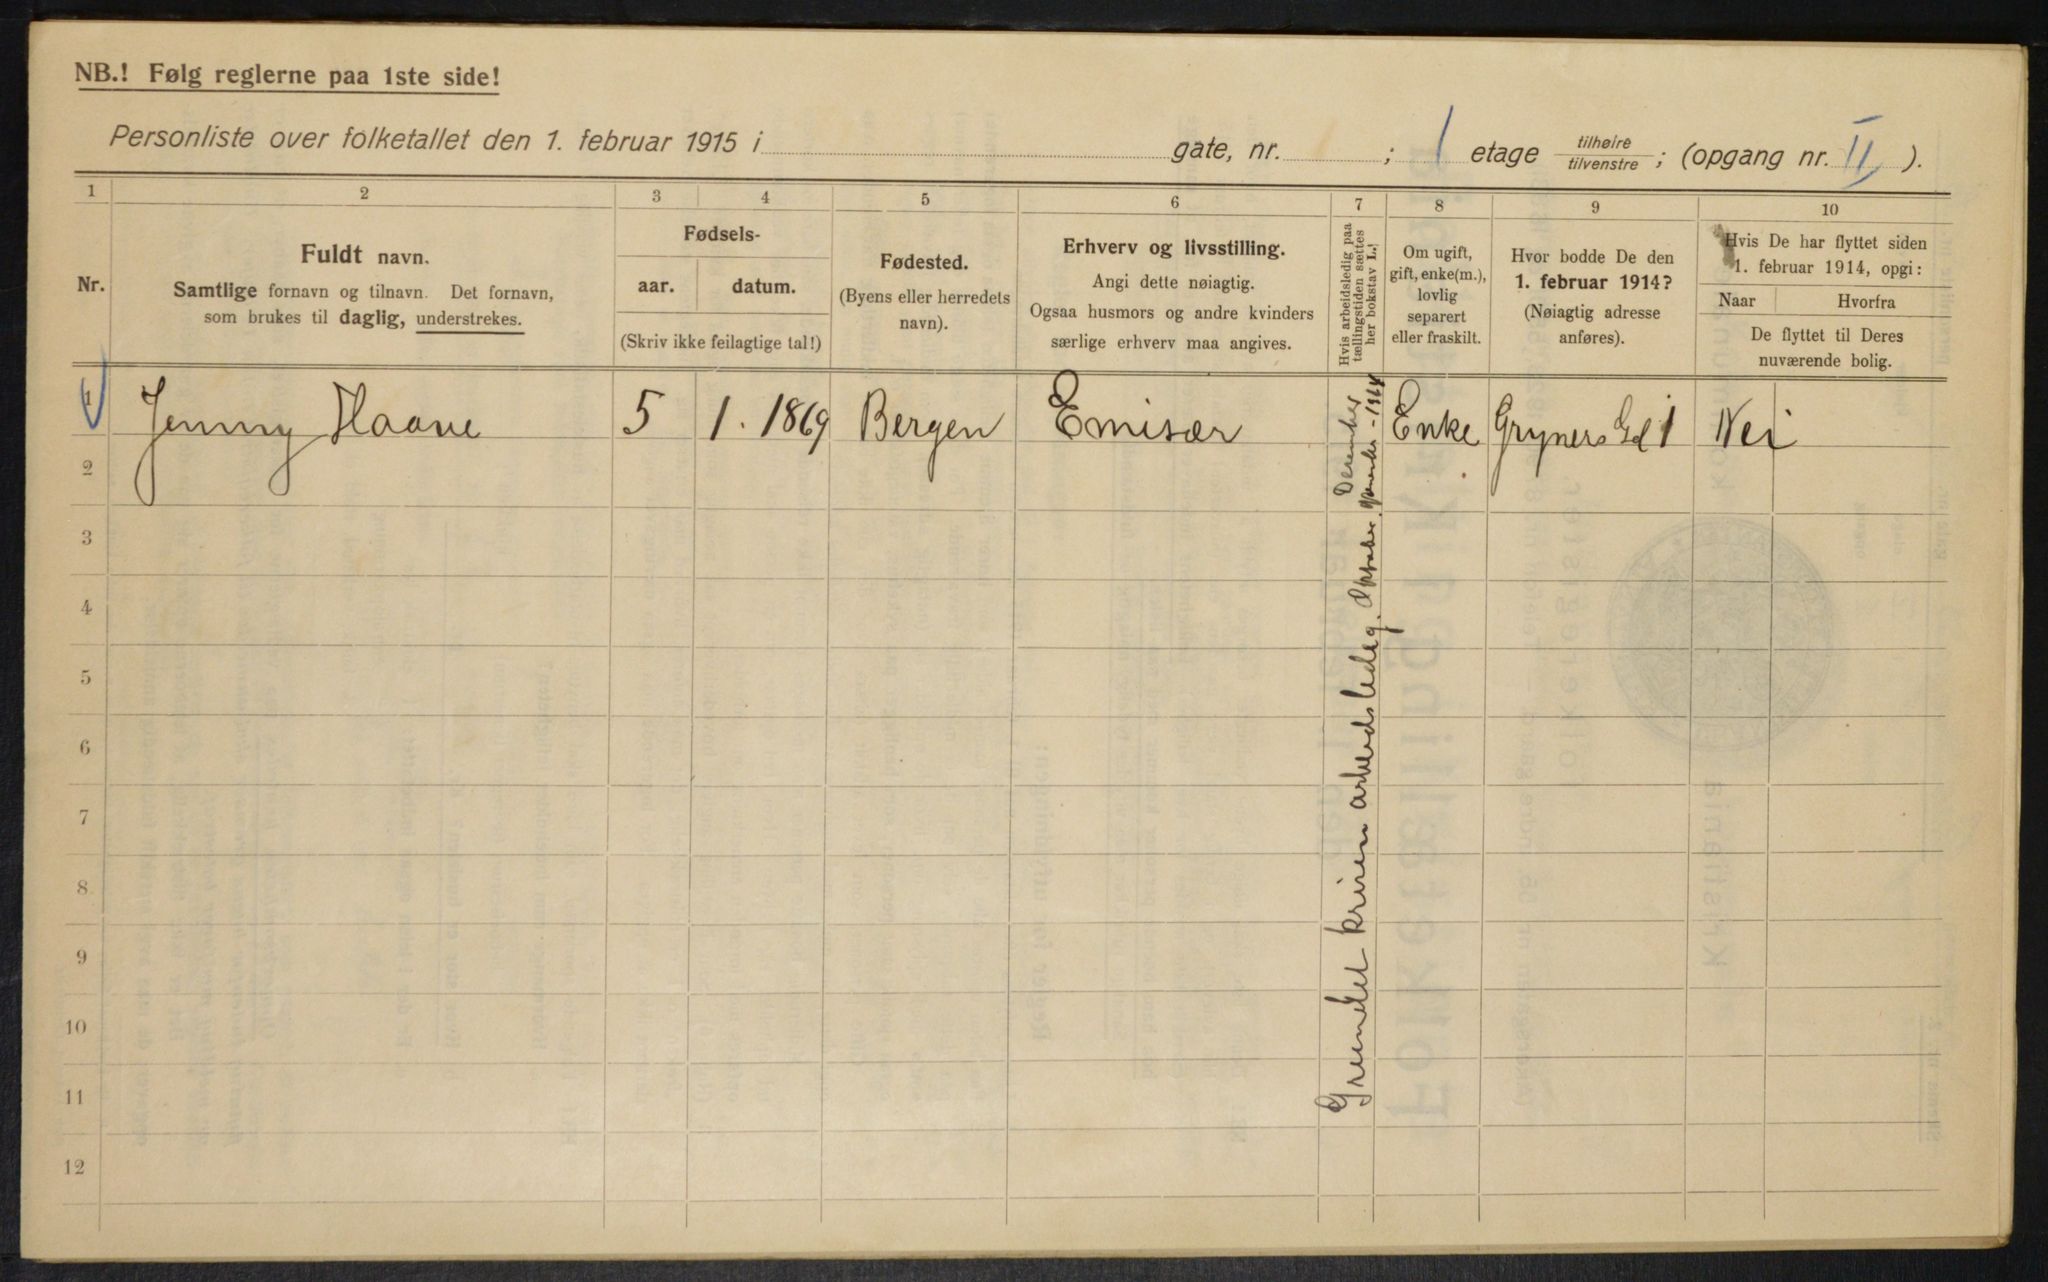 NB.! Følg reglerne paa 1ste side!
Personliste over folketallet den 1. februar 1915 i gate, nr. ; 1 etage tilhøire tilvenstre ; (opgang nr. II ).
1 2 3 4 5 6 7 8 9 10
Nr.
Fuldt navn.
Samtlige fornavn og tilnavn. Det fornavn,
som brukes til daglig, understrekes.
Fødsels-
aar. datum.
(Skriv ikke feilagtige tal!)
Fødested.
(Byens eller herredets
navn).
Erhverv og livsstilling.
Angi dette nøiagtig.
Ogsaa husmors og andre kvinders
særlige erhverv maa angives.
Hvis arbeidsledig paa
tællingstiden sættes
her bokstav L.!
Om ugift,
gift, enke(m.),
lovlig
separert
eller fraskilt.
Hvor bodde De den
1. februar 1914?
(Nøiagtig adresse
anføres).
Hvis De har flyttet siden
1. februar 1914, opgi:
Naar Hvorfra
De flyttet til Deres
nuværende bolig.
1 Jenny Haave 5 1. 1869 Bergen Emisær Enke Gryners Gd 1 Nei
Grundet krisen arbeidsledig. Oktober,
December
1914
2
3
4
5
6
7
8
9
10
11
12